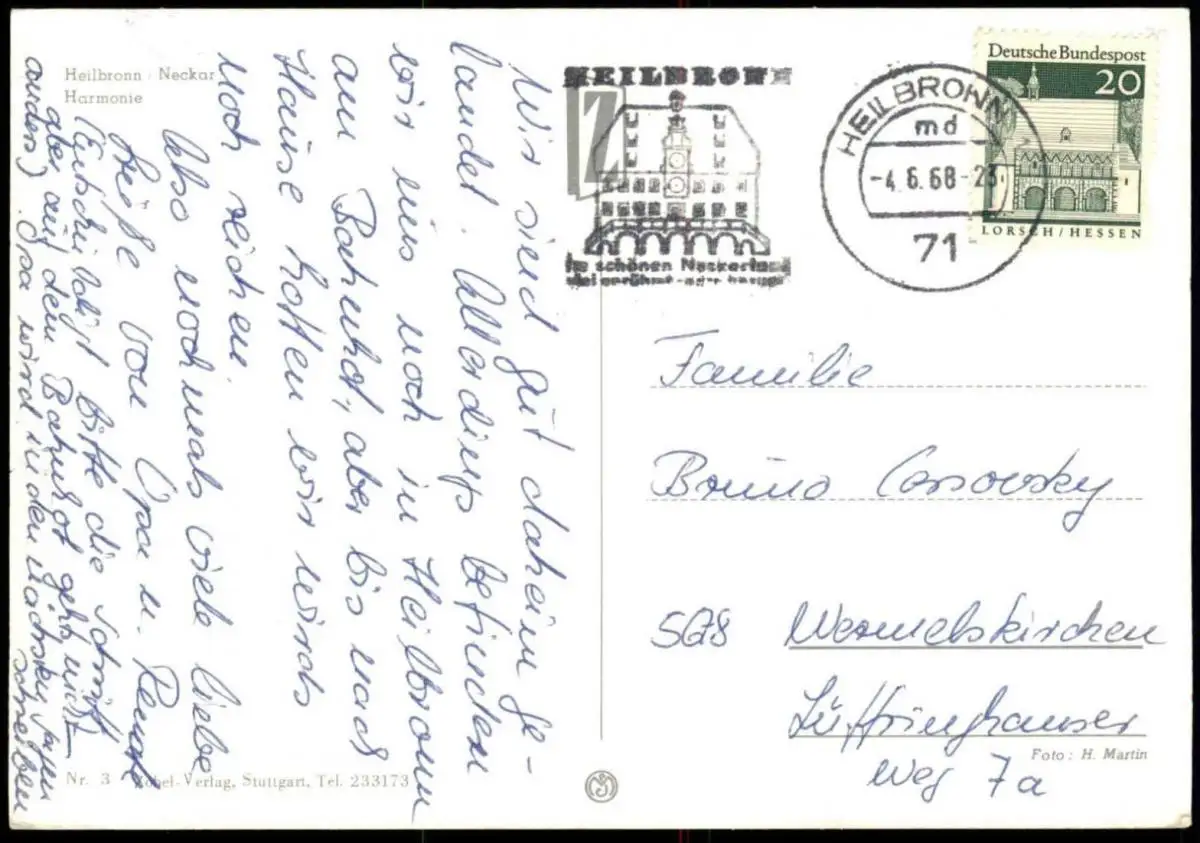 Heilbronn / Neckar
Harmonie
Wir sind gut daheim ge-
landet. Allerdings befinden
wir uns noch in Heilbronn
am Bahnhof, aber bis nach
Hause hatten wir wirds
noch reichen.
Also nochmals viele liebe
Grüße von Opa u. Renate
Entschuldigt bitte die Schrift
aber auf dem Bahnhof geht nicht
anders) Opa wird in den nächsten Tagen
schreiben
Nr. 3 Zobel-Verlag, Stuttgart, Tel. 233173
HEILBRONN
Im schönen Neckarland
viel gerühmt
HEILBRONN 1
md
-4.6.68-23
71
Deutsche Bundespost
20
LORSCH/HESSEN
Familie
Bruno
5678 Wermelskirchen
Lüffringhauser
Weg 7a
Foto: H. Martin